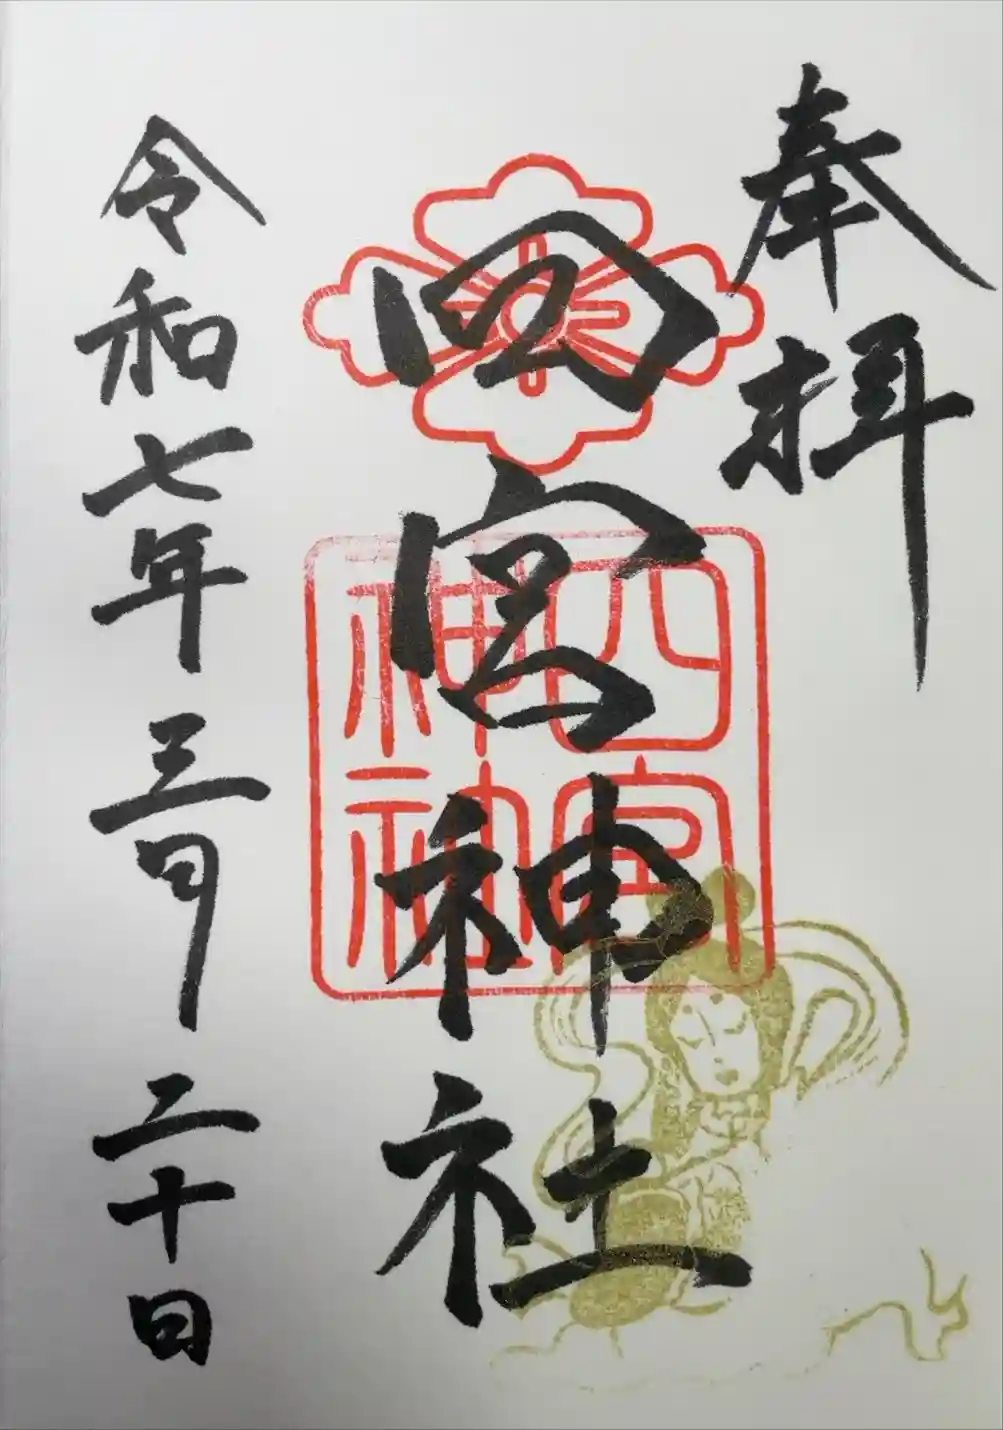 奉拝
四宮神社
四宮神社
令和七年三月二十日